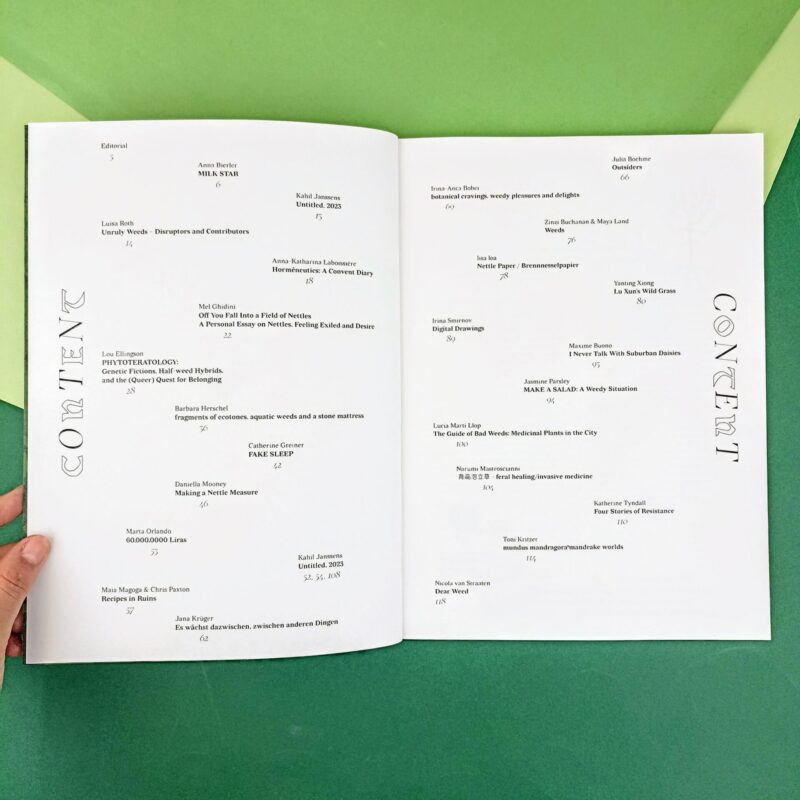 CONTENT
Editorial
3
Anna Bierler
MILK STAR
6
Kahil Janssens
Untitled, 2023
13
Luisa Roth
Unruly Weeds – Disruptors and Contributors
14
Anna-Katharina Labonssiere
Horméneutics: A Convent Diary
18
Mel Ghidini
Off You Fall Into a Field of Nettles
A Personal Essay on Nettles, Feeling Exiled and Desire
22
Lou Ellingson
PHYTOTERATOLOGY:
Genetic Fictions, Half-weed Hybrids,
and the (Queer) Quest for Belonging
28
Barbara Herschel
fragments of ecotones, aquatic weeds and a stone mattress
36
Catherine Greiner
FAKE SLEEP
42
Daniella Mooney
Making a Nettle Measure
46
Marta Orlando
60.000.0000 Liras
53
Kahil Janssens
Untitled, 2023
52, 54, 108
Maia Magoga & Chris Paxton
Recipes in Ruins
57
Jana Krüger
Es wächst dazwischen, zwischen anderen Dingen
62
Julia Boehme
Outsiders
66
Irina-Anca Bobei
botanical cravings, weedy pleasures and delights
69
Zinzi Buchanan & Maya Land
Weeds
76
Isa Ioa
Nettle Paper / Brennnesselpapier
78
Yanting Xiong
Lu Xun's Wild Grass
80
Irina Smirnov
Digital Drawings
89
Maxime Buono
I Never Talk With Suburban Daisies
93
Jasmine Parsley
MAKE A SALAD: A Weedy Situation
94
Lucia Marti Llop
The Guide of Bad Weeds: Medicinal Plants in the City
100
Narumi
泡立草 - feral healing/invasive medicine
104
Katherine Tyndall
Four Stories of Resistance
110
Toni Kritzer
mundus mandragora*mandrake worlds
114
Nicola van Straaten
Dear Weed
118
CONTENT